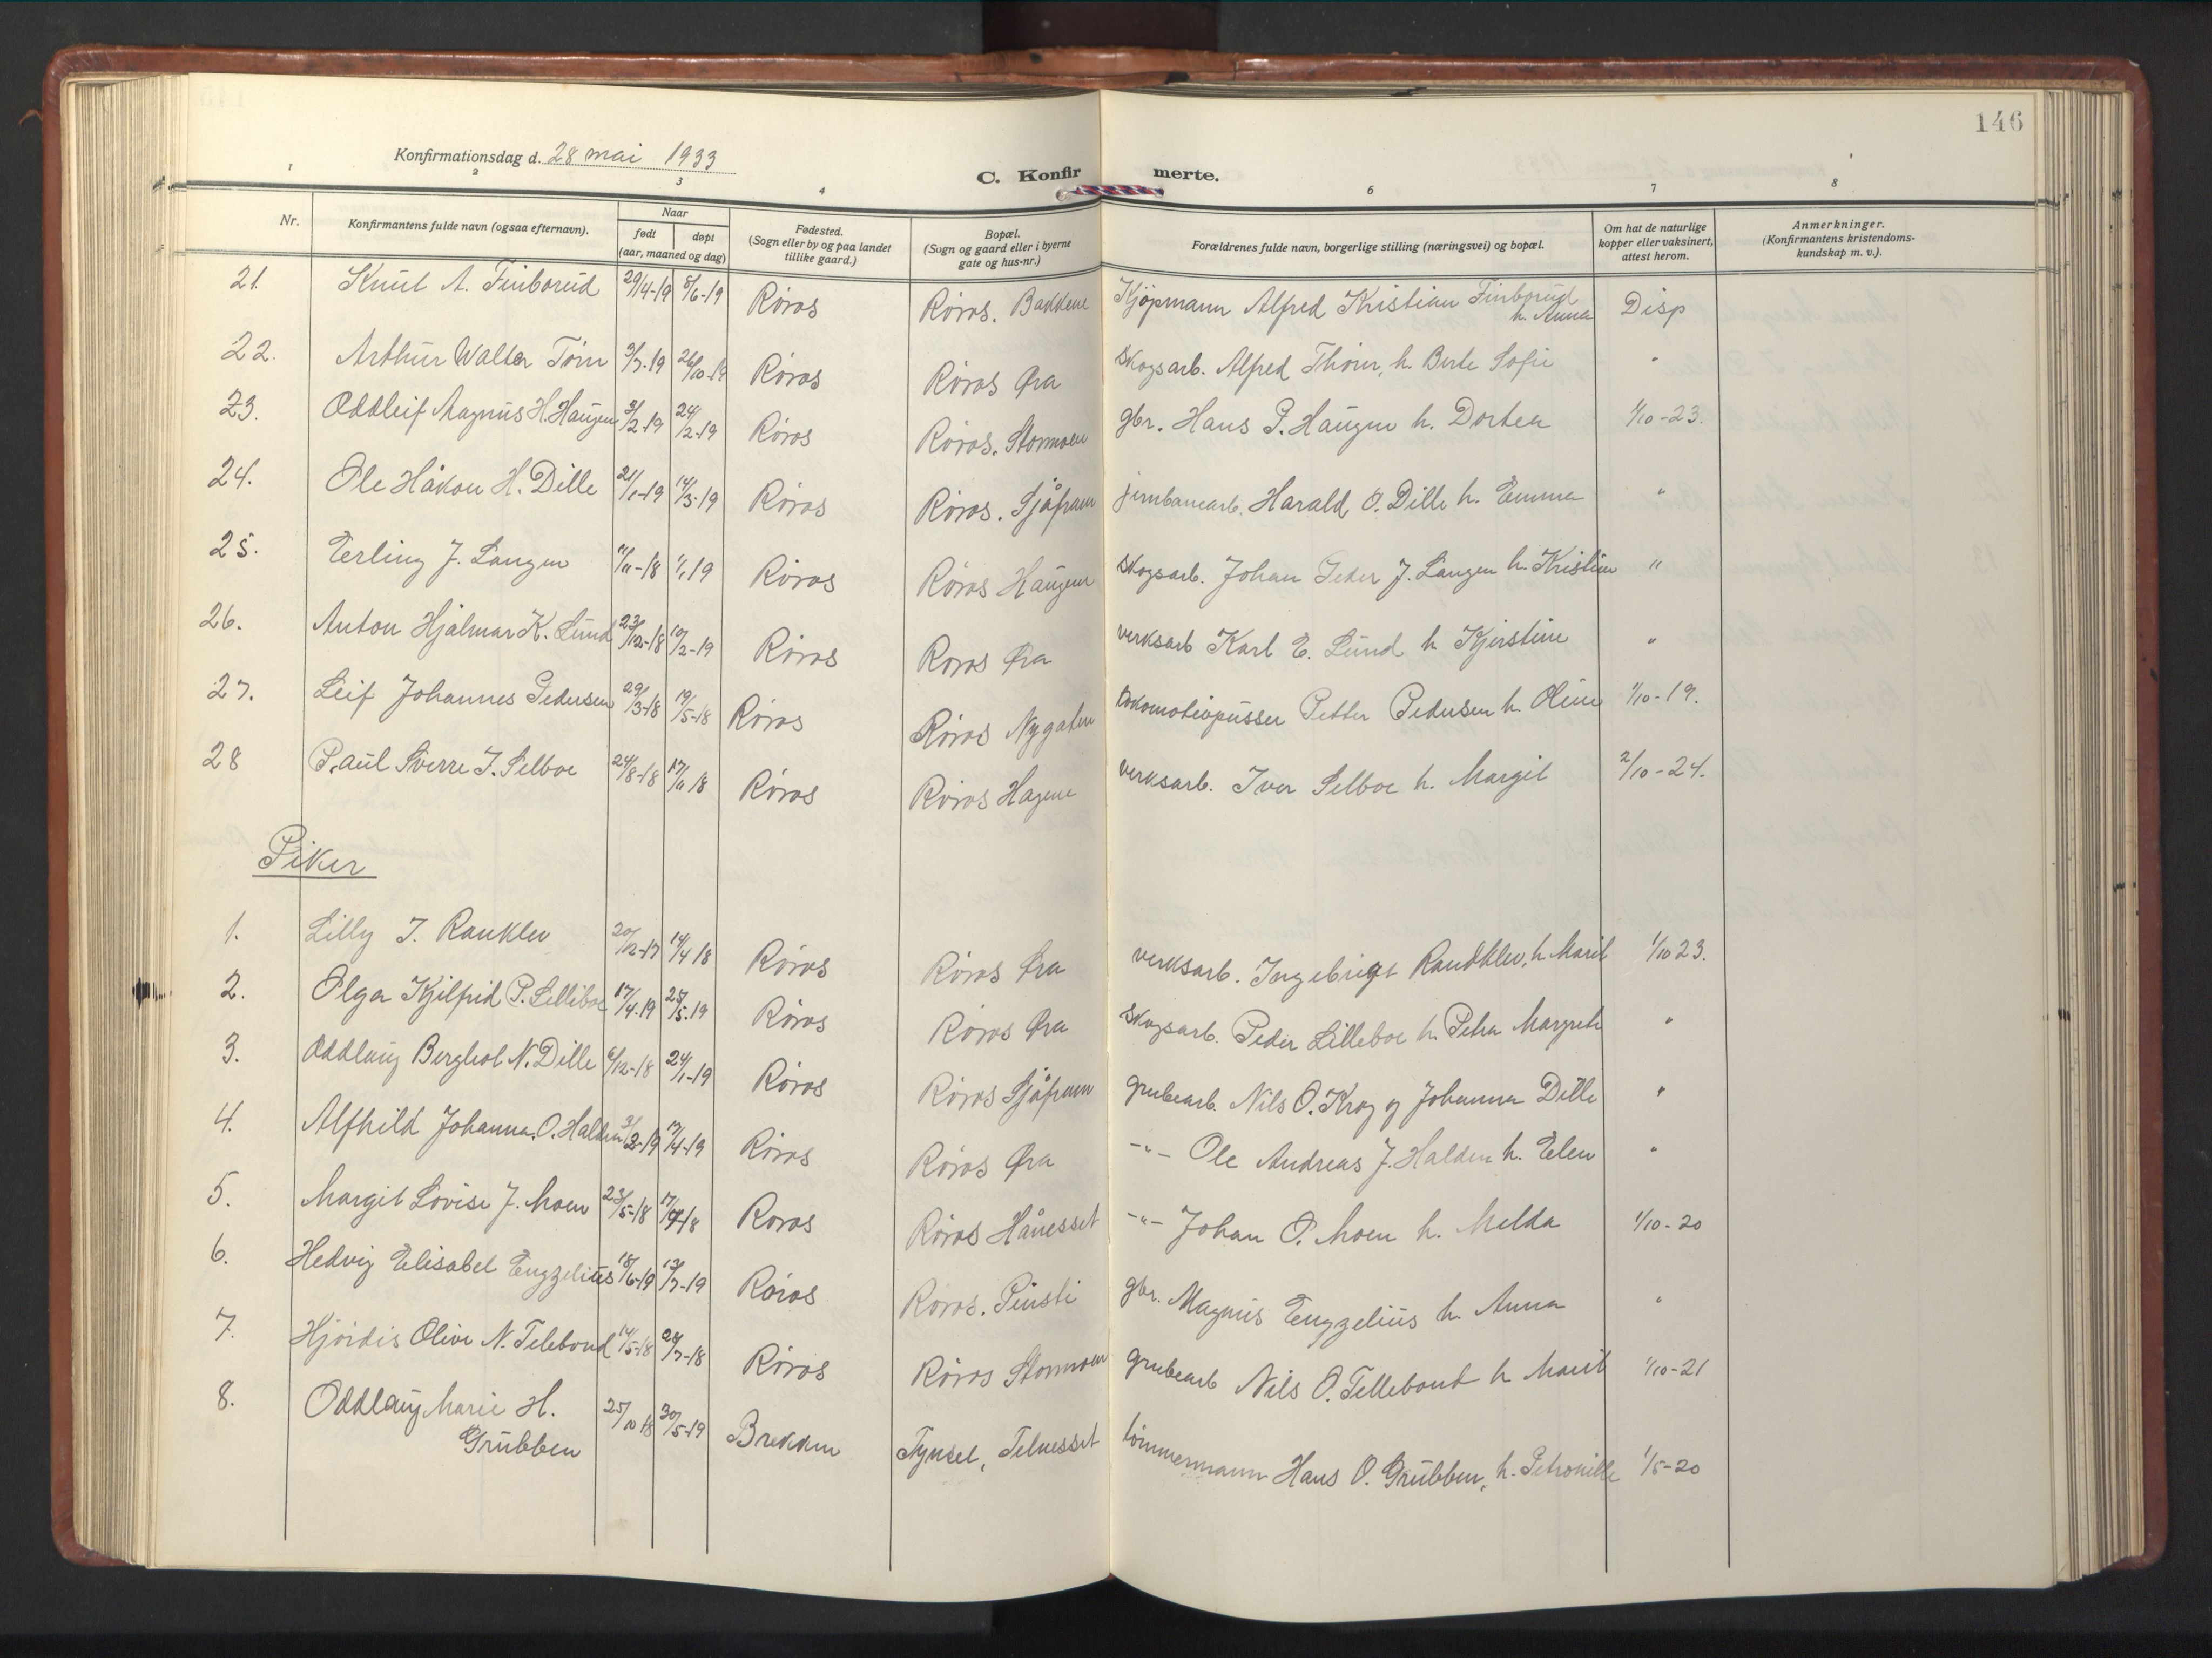 146
Konfirmationsdag d. 28 mai 1933
C. Konfirmerte.
1 2 3 4 6 7 8
Nr. Konfirmantens fulde navn (ogsaa efternavn). Naar født døpt (aar, maaned og dag) Fødested. (Sogn eller by og paa landet tillike gaard.) Bopæl. (Sogn og gaard eller i byerne gate og hus-nr.) Forældrenes fulde navn, borgerlige stilling (næringsvei) og bopæl. Om hat de naturlige kopper eller vaksinert, attest herom. Anmerkninger. (Konfirmantens kristendomskundskap m. v.).
21. Knut A. Finborud 29/4-19 8/6-19 Røros Røros. Bakkene Kjøpmann Alfred Kristian Finborud h. Anna Disp
22. Arthur Walter Törn 3/7-19 26/10-19 Røros Røros Øra Skogsarb. Alfred Thörn, h. Berte Sofie "
23. Oddleif Magnus H. Haugen 3/2-19 24/2-19 Røros Røros. Stormoen gbr. Hans P. Haugen h. Dortea 1/10-23.
24. Ole Håkon H. Dille 21/1-19 14/3-19 Røros Røros. Sjåfram jernbanearb. Harald O. Dille h. Emma "
25. Erling J. Langen 11/11-18 1/1 19 Røros Røros Haugene Skogsarb. Johan Peder J. Langen h. Kristine "
26. Anton Hjalmar K. Lund 23/12-18 10/2-19 Røros Røros Øra verksarb Karl E. Lund h Kjerstine "
27. Leif Johannes Pedersen 29/3-18 19/5-18 Røros Røros Nygaten Lokomotivpusser Petter Pedersen h. Oline 1/10-19.
28 Paul Sverre I. Selboe 24/8-18 17/11 18 Røros Røros Hagene verksarb. Iver Selboe h. Margit 2/10-24.
Piker
1. Lilly I. Ranklev 20/12-17 14/4 18 Røros Røros Øra verksarb. Ingebrigt Randklev, h. Marit 1/10 23.
2. Olga Kjilfrid P. Lilleboe 17/4-19 25/5-19 Røros Røros Øra Skogsarb. Peder Lilleboe h. Petra Margrete "
3. Oddlaug Berghol N. Dille 6/12-18 24/1-19 Røros Røros Sjåfram grubearb. Nils O. Krog og Johanna Dille "
4. Alfhild Johanna O. Halden 3/2-19 17/4-19 Røros Røros Øra -"- Ole Andreas J. Halden h. Elen "
5. Margit Lovise J. Moen 23/5-18 17/7-18 Røros Røros Hånesset -"- Johan O. Moen h. Melda 1/10-20
6. Hedvig Elisabet Engzelius 18/6-19 13/7-19 Røros Røros. Pinsti gbr. Magnus Engzelius h. Anna "
7. Hjördis Olive N. Tellebond 14/5-18 24/7-18 Røros Røros Stormoen grubearb Nils O. Tellebond h Marit 1/10-21
8. Oddlaug Marie H. Grubben 25/10 18 30/5-19 Brekken Tynset, Telnesset tömmermann Hans O. Grubben, h. Petronille 1/5-20